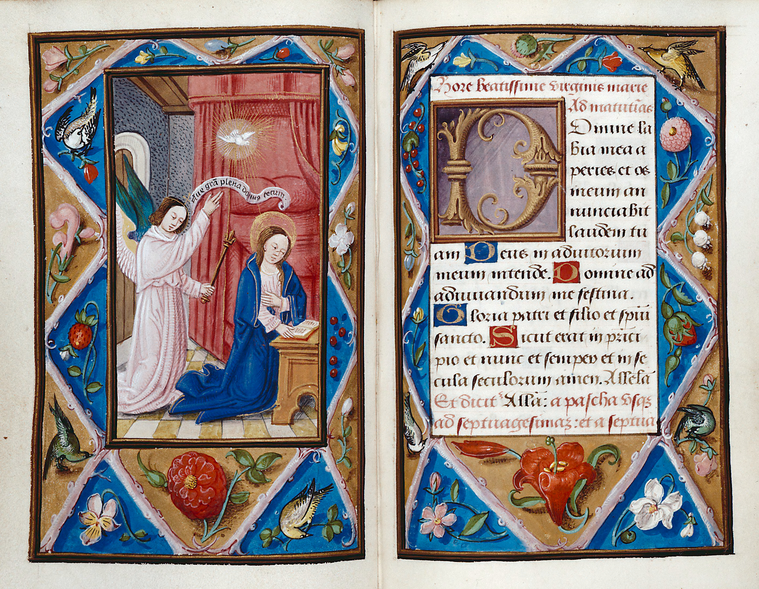 Aue grã plena dominus tecum
Hore beatissime virginis marie
Ad matutinas
Domine la
bia mea a
peries et os
meum an
nunciabit
laudem tu
am Deus in adiutorium
meum intende. Domine ad
adiuuandum me festina.
Gloria patri et filio et spiritui
sancto. Sicut erat in princi
pio et nunc et semper et in se
cula seculorum amen. Allelã
Et dicit Allã: a pascha vsqz
ad septuagesimaz: et a septua